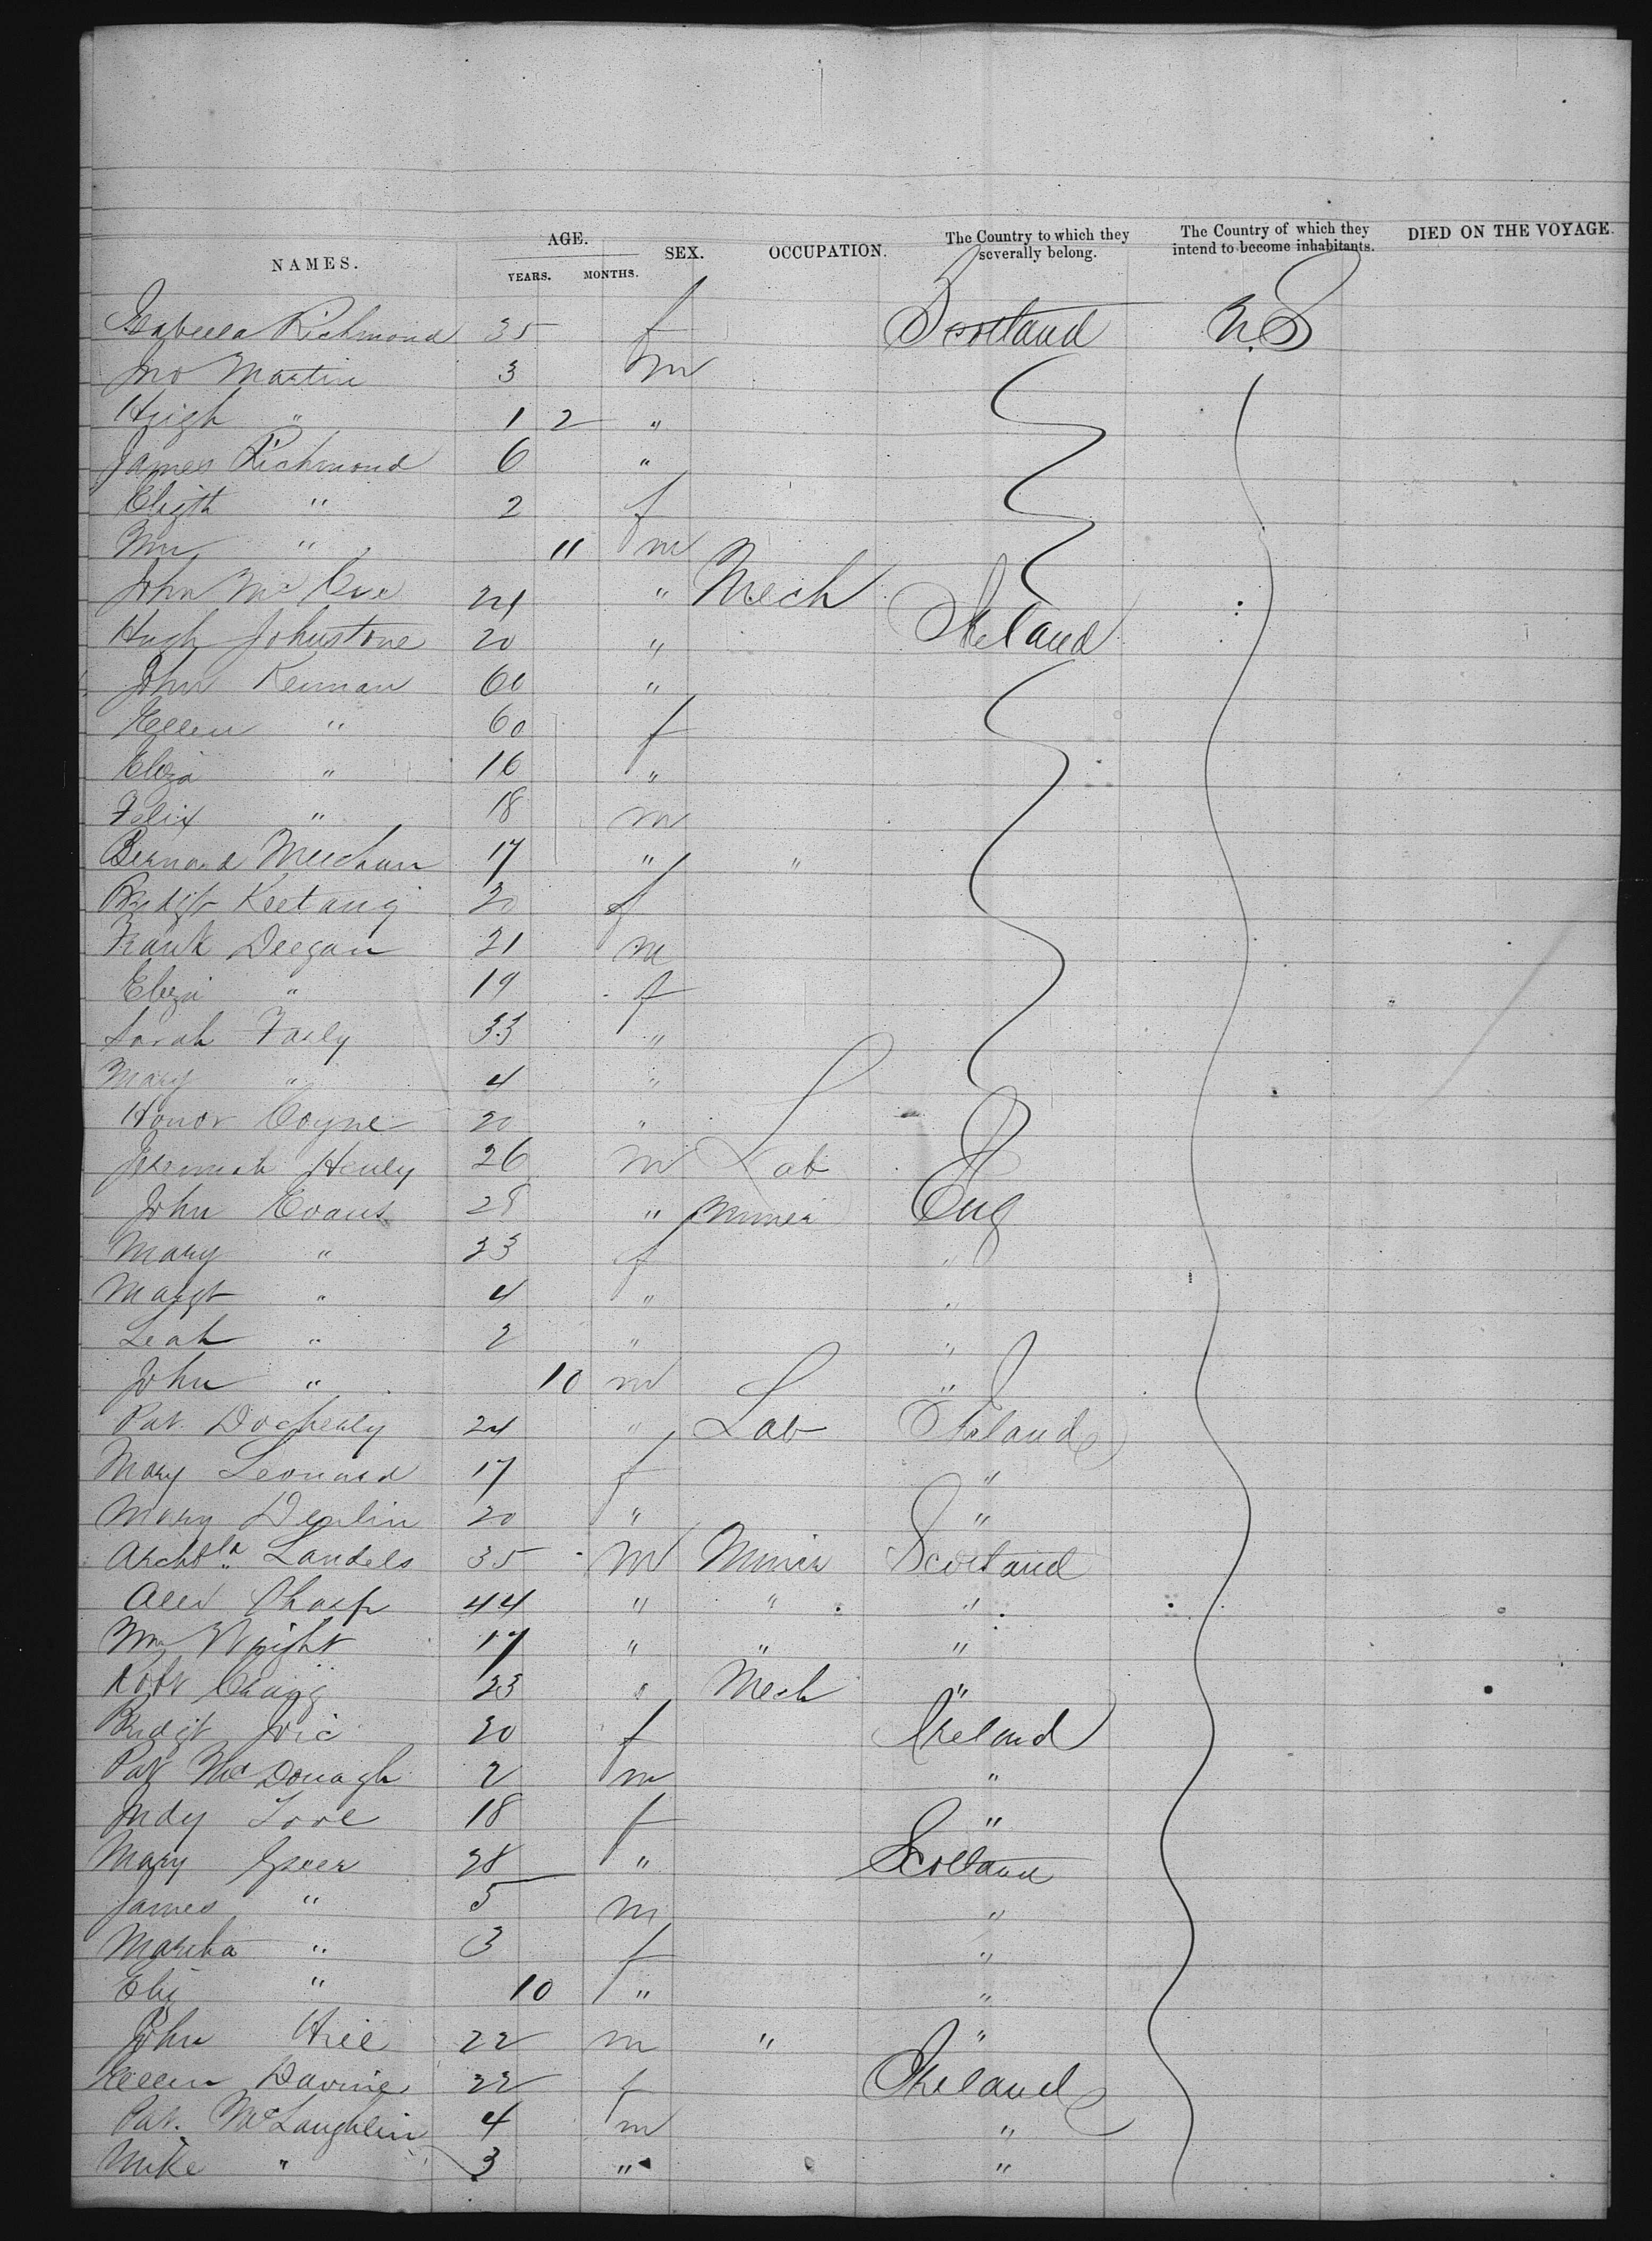 NAMES. AGE. YEARS. MONTHS. SEX. OCCUPATION. The Country to which they severally belong. The Country of which they intend to become inhabitants. DIED ON THE VOYAGE.
Isabella Richmond 35 f Scotland U.S
Jno Martin 3 m
Hugh " 1 2 "
James Richmond 6 "
Elizth " 2 f
Wm " 11 m
John McCue 24 " Mech
Hugh Johnstone 20 " Ireland
John Keirnan 60 "
Ellen " 60 f
Eliza " 16 "
Felix " 18 m
Bernard Meechan 17 " "
Bridgt 20 f
Frank Deegan 21 m
Eliza " 19 f
Sarah 33 "
Mary " 4 "
Honor Coyne 20 "
Jeremiah Henly 26 m Lab
John Evans 28 " Miner Eng
Mary " 23 f "
Margt " 4 " "
Leah " 2 " "
John " 10 m "
Pat. Docherty 24 " Lab Ireland
Mary Leonard 17 f "
Mary Devlin 20 " "
Archbld Landels 35 m Miner Scotland
Alex Sharp 44 " " "
Wm Wright 17 " " "
Robt Craig 23 " Mech "
Bridgt 20 f Ireland
Pat McDonagh 2 m "
Judy 18 f "
Mary Greer 28 " Scotland
James " 5 m "
Martha " 3 f "
Eliz " 10 " "
John Hill 22 m " "
Ellen Davine 22 f Ireland
Pat. McLaughlin 4 m "
Mike " 3 " "